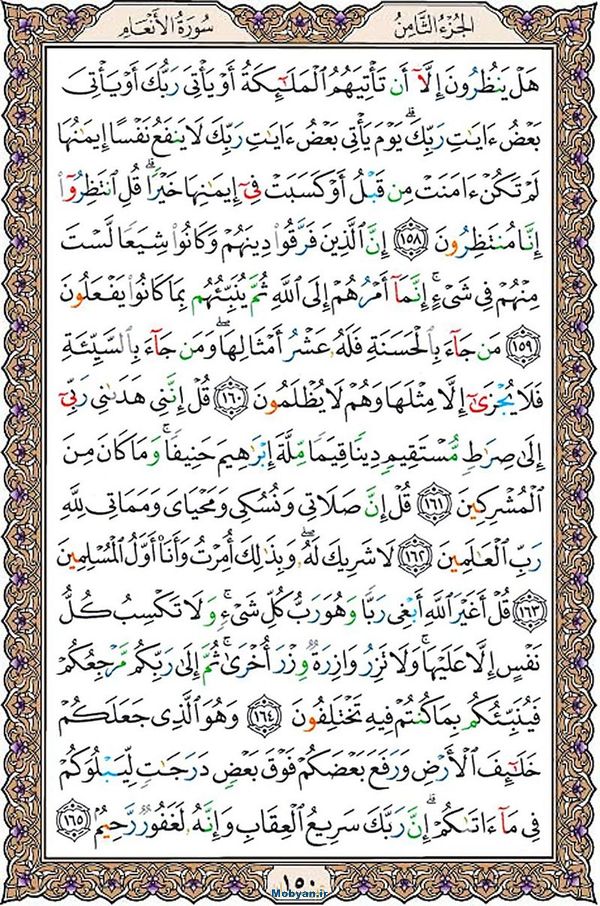 الجُزءُ الثَّامِنُ سُورَةُ الأَنعَامِ
هَلۡ يَنظُرُونَ إِلَّآ أَن تَأۡتِيَهُمُ ٱلۡمَلَٰٓئِكَةُ أَوۡ يَأۡتِيَ رَبُّكَ أَوۡ يَأۡتِيَ
بَعۡضُ ءَايَٰتِ رَبِّكَۗ يَوۡمَ يَأۡتِي بَعۡضُ ءَايَٰتِ رَبِّكَ لَا يَنفَعُ نَفۡسًا إِيمَٰنُهَا
لَمۡ تَكُنۡ ءَامَنَتۡ مِن قَبۡلُ أَوۡ كَسَبَتۡ فِيٓ إِيمَٰنِهَا خَيۡرٗاۗ قُلِ ٱنتَظِرُوٓاْ
إِنَّا مُنتَظِرُونَ ١٥٨ إِنَّ ٱلَّذِينَ فَرَّقُواْ دِينَهُمۡ وَكَانُواْ شِيَعٗا لَّسۡتَ
مِنۡهُمۡ فِي شَيۡءٍۚ إِنَّمَآ أَمۡرُهُمۡ إِلَى ٱللَّهِ ثُمَّ يُنَبِّئُهُم بِمَا كَانُواْ يَفۡعَلُونَ
١٥٩ مَن جَآءَ بِٱلۡحَسَنَةِ فَلَهُۥ عَشۡرُ أَمۡثَالِهَاۖ وَمَن جَآءَ بِٱلسَّيِّئَةِ
فَلَا يُجۡزَىٰٓ إِلَّا مِثۡلَهَا وَهُمۡ لَا يُظۡلَمُونَ ١٦٠ قُلۡ إِنَّنِي هَدَىٰنِي رَبِّيٓ
إِلَىٰ صِرَٰطٖ مُّسۡتَقِيمٖ دِينٗا قِيَمٗا مِّلَّةَ إِبۡرَٰهِيمَ حَنِيفٗاۚ وَمَا كَانَ مِنَ
ٱلۡمُشۡرِكِينَ ١٦١ قُلۡ إِنَّ صَلَاتِي وَنُسُكِي وَمَحۡيَايَ وَمَمَاتِي لِلَّهِ
رَبِّ ٱلۡعَٰلَمِينَ ١٦٢ لَا شَرِيكَ لَهُۥۖ وَبِذَٰلِكَ أُمِرۡتُ وَأَنَا۠ أَوَّلُ ٱلۡمُسۡلِمِينَ
١٦٣ قُلۡ أَغَيۡرَ ٱللَّهِ أَبۡغِي رَبّٗا وَهُوَ رَبُّ كُلِّ شَيۡءٖۚ وَلَا تَكۡسِبُ كُلُّ
نَفۡسٍ إِلَّا عَلَيۡهَاۚ وَلَا تَزِرُ وَازِرَةٞ وِزۡرَ أُخۡرَىٰۚ ثُمَّ إِلَىٰ رَبِّكُم مَّرۡجِعُكُمۡ
فَيُنَبِّئُكُم بِمَا كُنتُمۡ فِيهِ تَخۡتَلِفُونَ ١٦٤ وَهُوَ ٱلَّذِي جَعَلَكُمۡ
خَلَٰٓئِفَ ٱلۡأَرۡضِ وَرَفَعَ بَعۡضَكُمۡ فَوۡقَ بَعۡضٖ دَرَجَٰتٖ لِّيَبۡلُوَكُمۡ
فِي مَآ ءَاتَىٰكُمۡۗ إِنَّ رَبَّكَ سَرِيعُ ٱلۡعِقَابِ وَإِنَّهُۥ لَغَفُورٞ رَّحِيمُۢ ١٦٥
١٥٠
Mobyan.ir